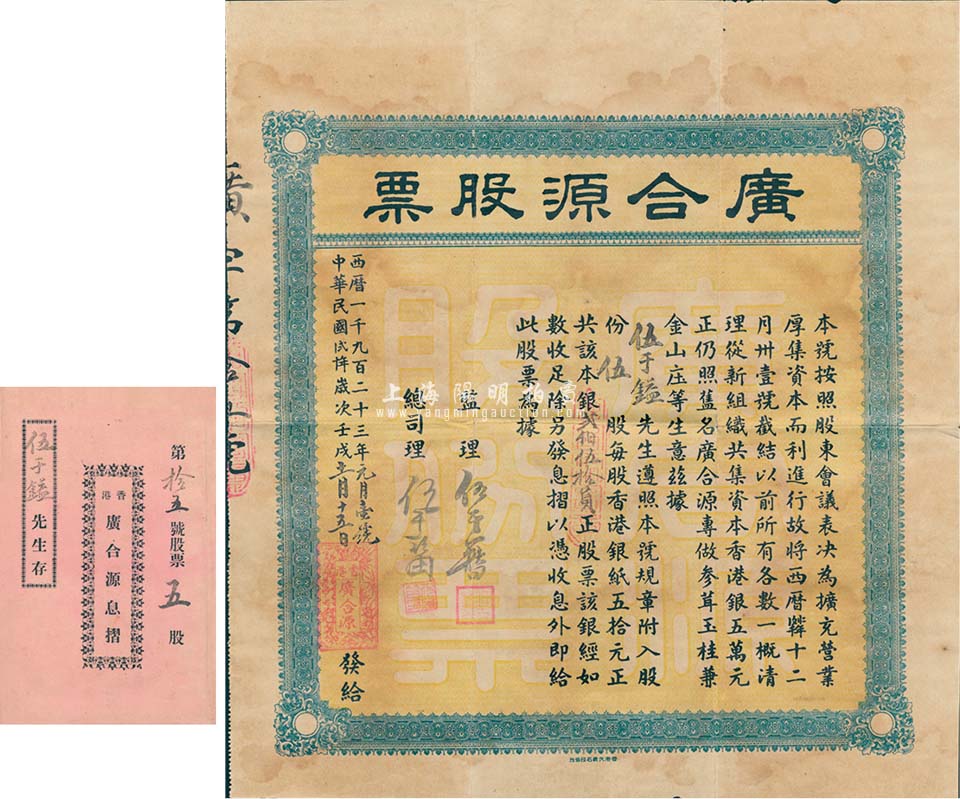 廣合源股票
本號按照股東會議表决為擴充營業
厚集資本而利進行故將西曆 十二
月卅壹號截結以前所有各數一概清
理從新組織共集資本香港銀五萬元
正仍照舊名廣合源專做參茸玉桂兼
金山庄等生意茲據
伍于鎰先生遵照本號規章附入股
份伍股每股香港銀紙五拾元正
共該本銀貳佰伍拾員正股票該銀經如
數收足除另發息摺以憑收息外即給
此股票為據
監理
總司理
西曆一千九百二十三年元月壹號
中華民國 歲次壬戌 月十五日
廣合源
發給
廣字第拾五號
上海陽明拍賣
www.yangmingauction.com
第拾五號股票五股
香港廣合源息摺
伍于鎰先生存